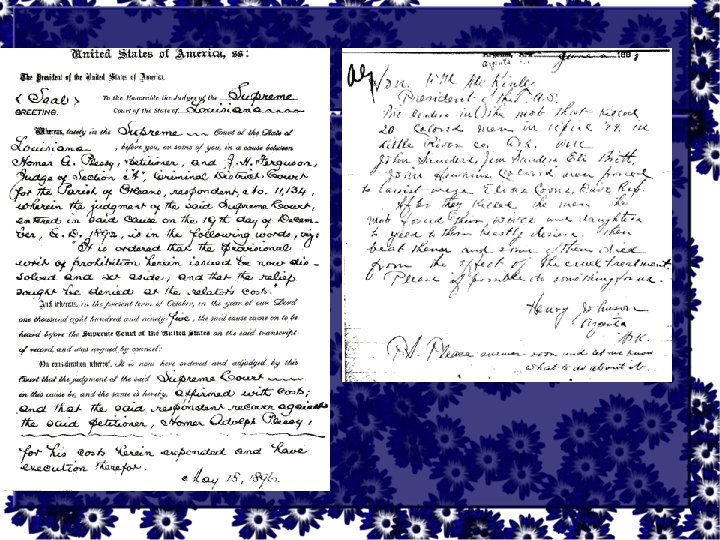 United States of America, ss:
The President of the United States of America,
(Seal) To the Honorable the Judges of the Supreme
GREETING: Court of the State of Louisiana
Whereas, lately in the Supreme Court of the State of
Louisiana, before you, or some of you, in a cause between
Homer A. Plessy, Petitioner, and J. H. Ferguson,
Judge of Section "A", Criminal District Court
for the Parish of Orleans, respondent, No. 11,134,
wherein the judgment of the said Supreme Court,
entered in said cause on the 19th day of Decem-
ber, A. D. 1892, is in the following words, viz:
"It is ordered that the provisional
writ of prohibition herein issued be now dis-
solved and set aside, and that the relief
sought be denied at the relator's costs."
And whereas, in the present term of October, in the year of our Lord
one thousand eight hundred and ninety-five, the said cause came on to be
heard before the Supreme Court of the United States on the said transcript
of record, and was argued by counsel:
On consideration whereof, It is now here ordered and adjudged by this
Court that the judgment of the said Supreme Court
in this cause be, and the same is hereby, affirmed with costs;
and that the said respondent recover against
the said petitioner, Homer Adolph Plessy,
for his costs herein expended and have
execution therefor.
May 18, 1896.
Hon. Wm McKinley
President of the U.S.
in the mob that killed
20 colored men in 99. in
Little River co Ark. were
John Sanders, Jim Sanders
John Hawkins colored was forced
to assist
After they killed the men the
mob forced their wives and daughters
to yield to their beastly desire. then
beat them and some of them died
from the effect of the cruel treatment.
Please if possible do something for us.
Henry Johnson
Ark.
P.S. Please answer soon and let me know
what to do about it.